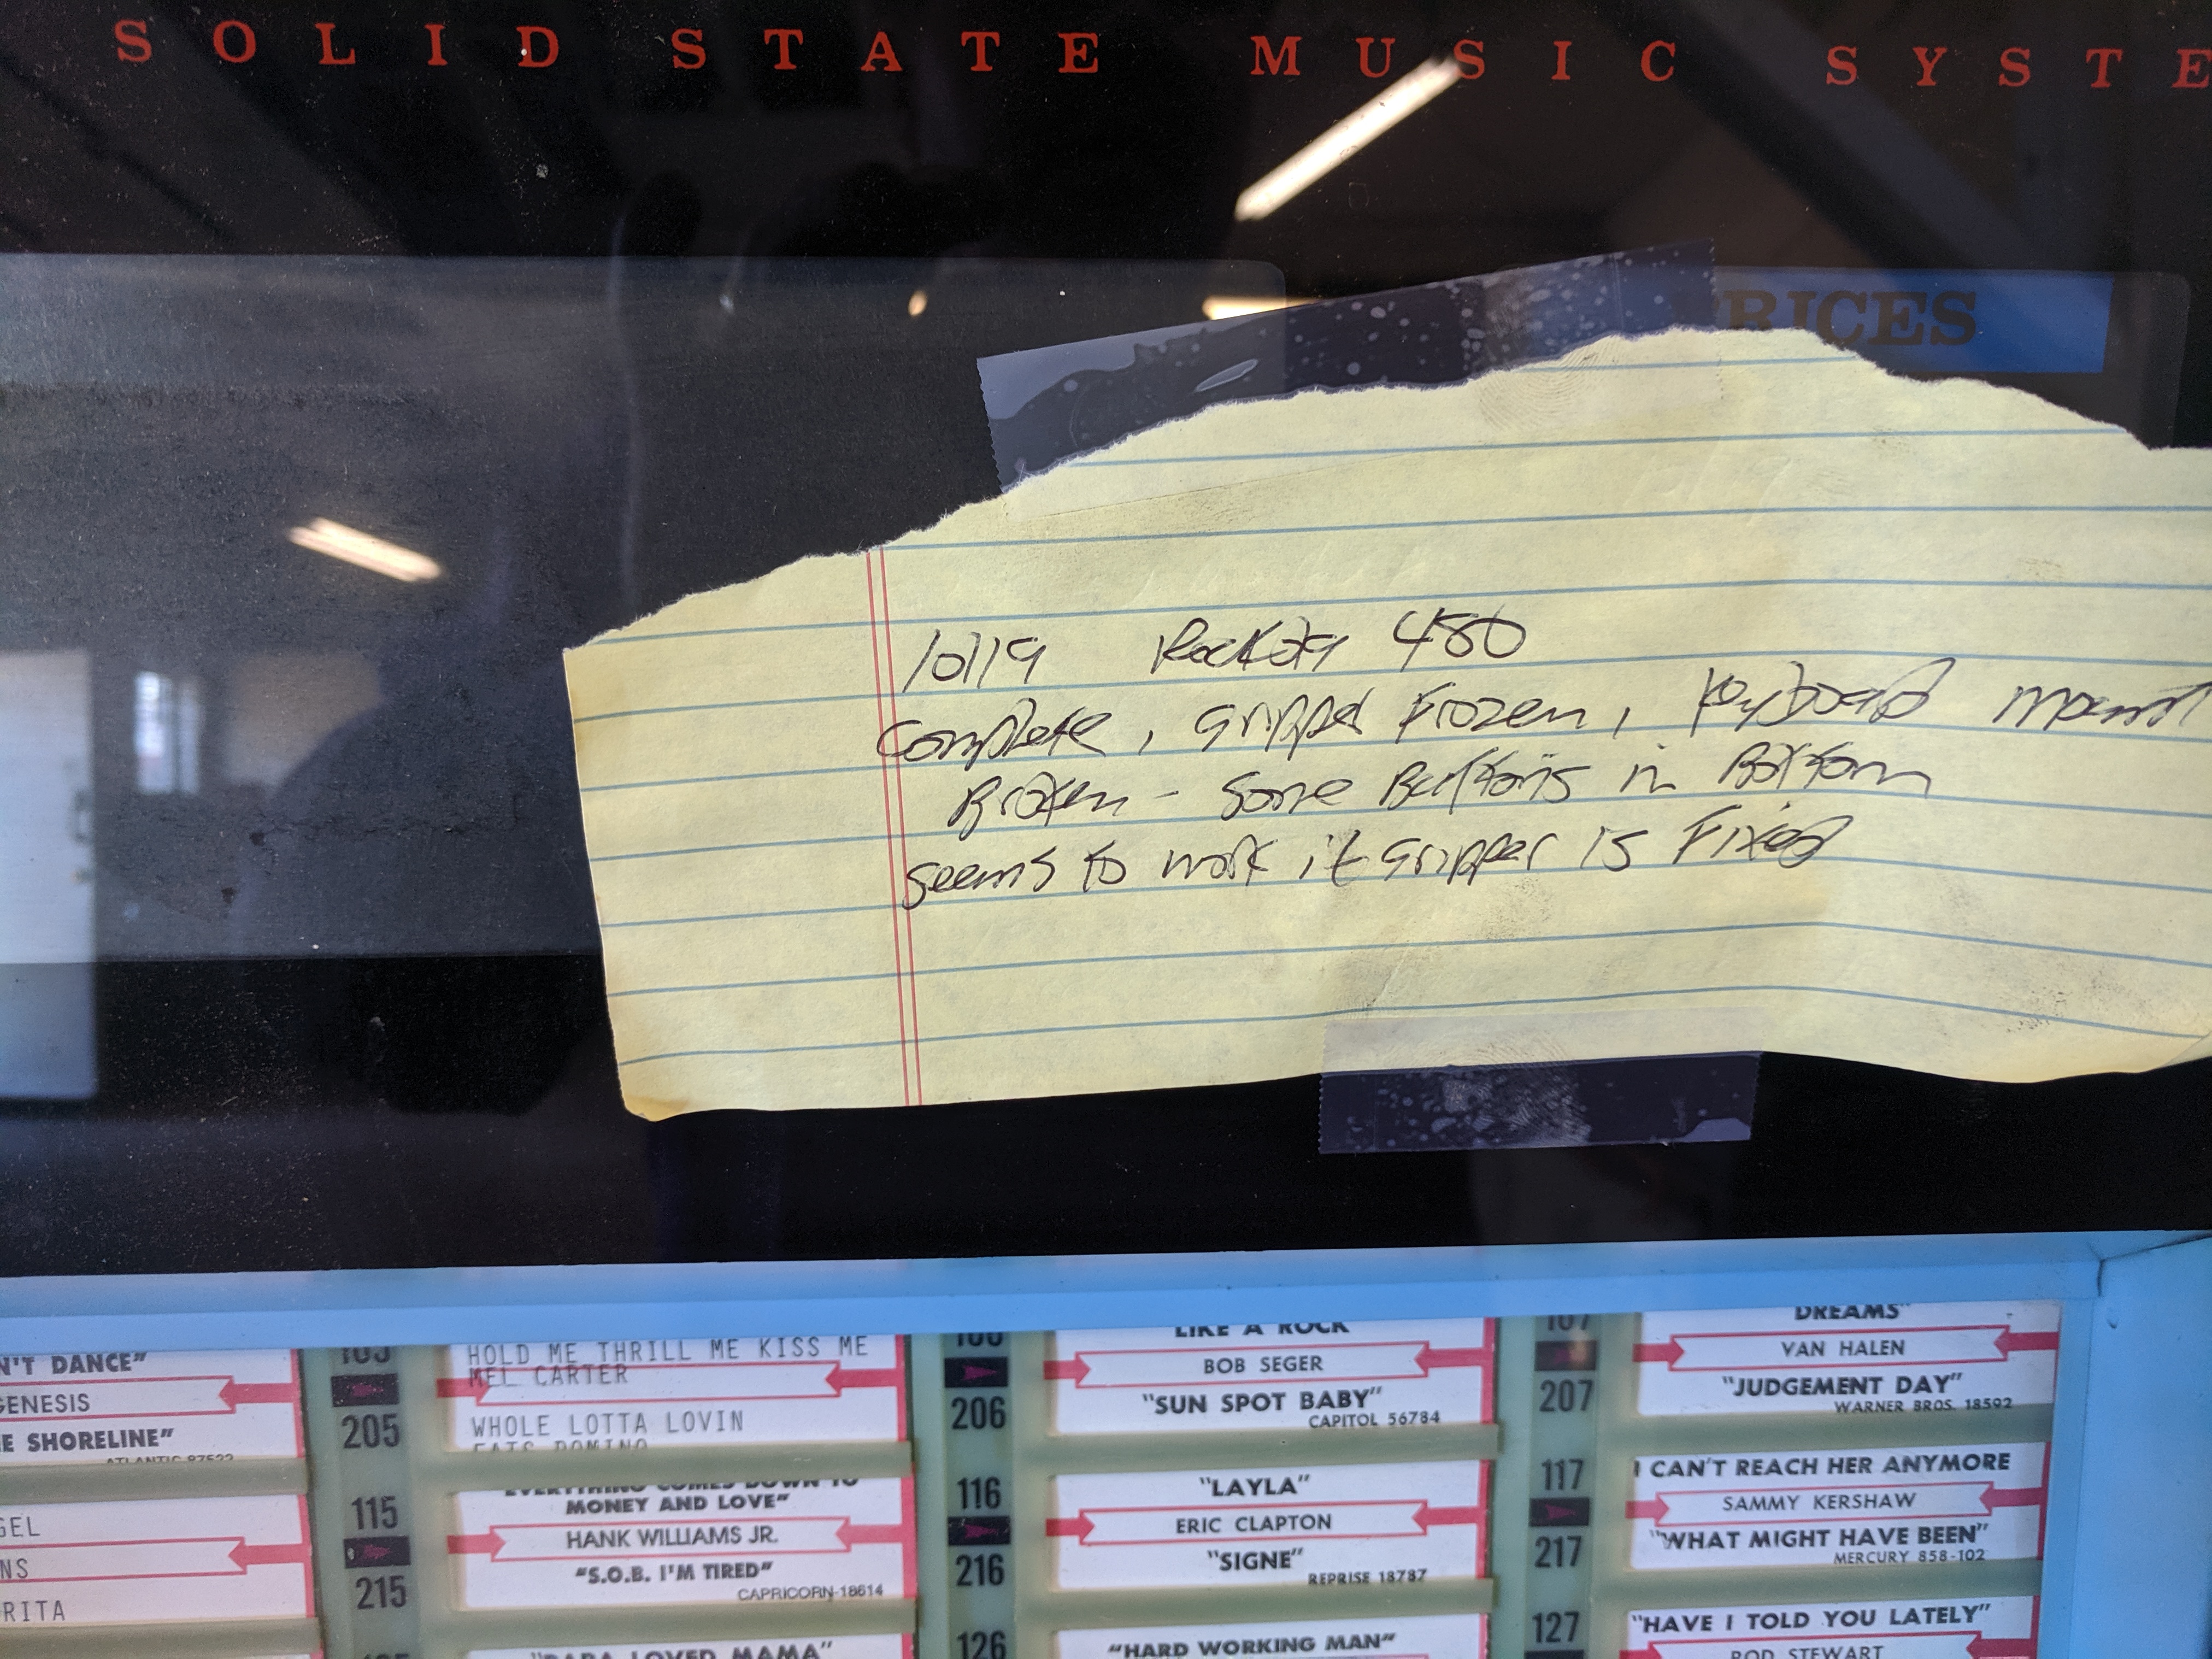 SOLID STATE MUSIC SYSTE
PRICES
10/19 Rockola 480
Complete, gripper Frozen, Keyboard mount
Broken - Some Buttons in Bottom
Seems to work if Gripper is Fixed
N'T DANCE"
GENESIS
E SHORELINE"
ATLANTIC 87522
105
205
HOLD ME THRILL ME KISS ME
MEL CARTER
WHOLE LOTTA LOVIN
FATS DOMINO
106
206
LIKE A ROCK
BOB SEGER
"SUN SPOT BABY"
CAPITOL 56784
107
207
DREAMS"
VAN HALEN
"JUDGEMENT DAY"
WARNER BROS. 18592
GEL
NS
RITA
115
215
EVERYTHING COMES DOWN TO
MONEY AND LOVE"
HANK WILLIAMS JR.
"S.O.B. I'M TIRED"
CAPRICORN-18614
116
216
"LAYLA"
ERIC CLAPTON
"SIGNE"
REPRISE 18787
117
217
I CAN'T REACH HER ANYMORE
SAMMY KERSHAW
"WHAT MIGHT HAVE BEEN"
MERCURY 858-102
"PAPA LOVED MAMA"
126
"HARD WORKING MAN"
127
"HAVE I TOLD YOU LATELY"
ROD STEWART